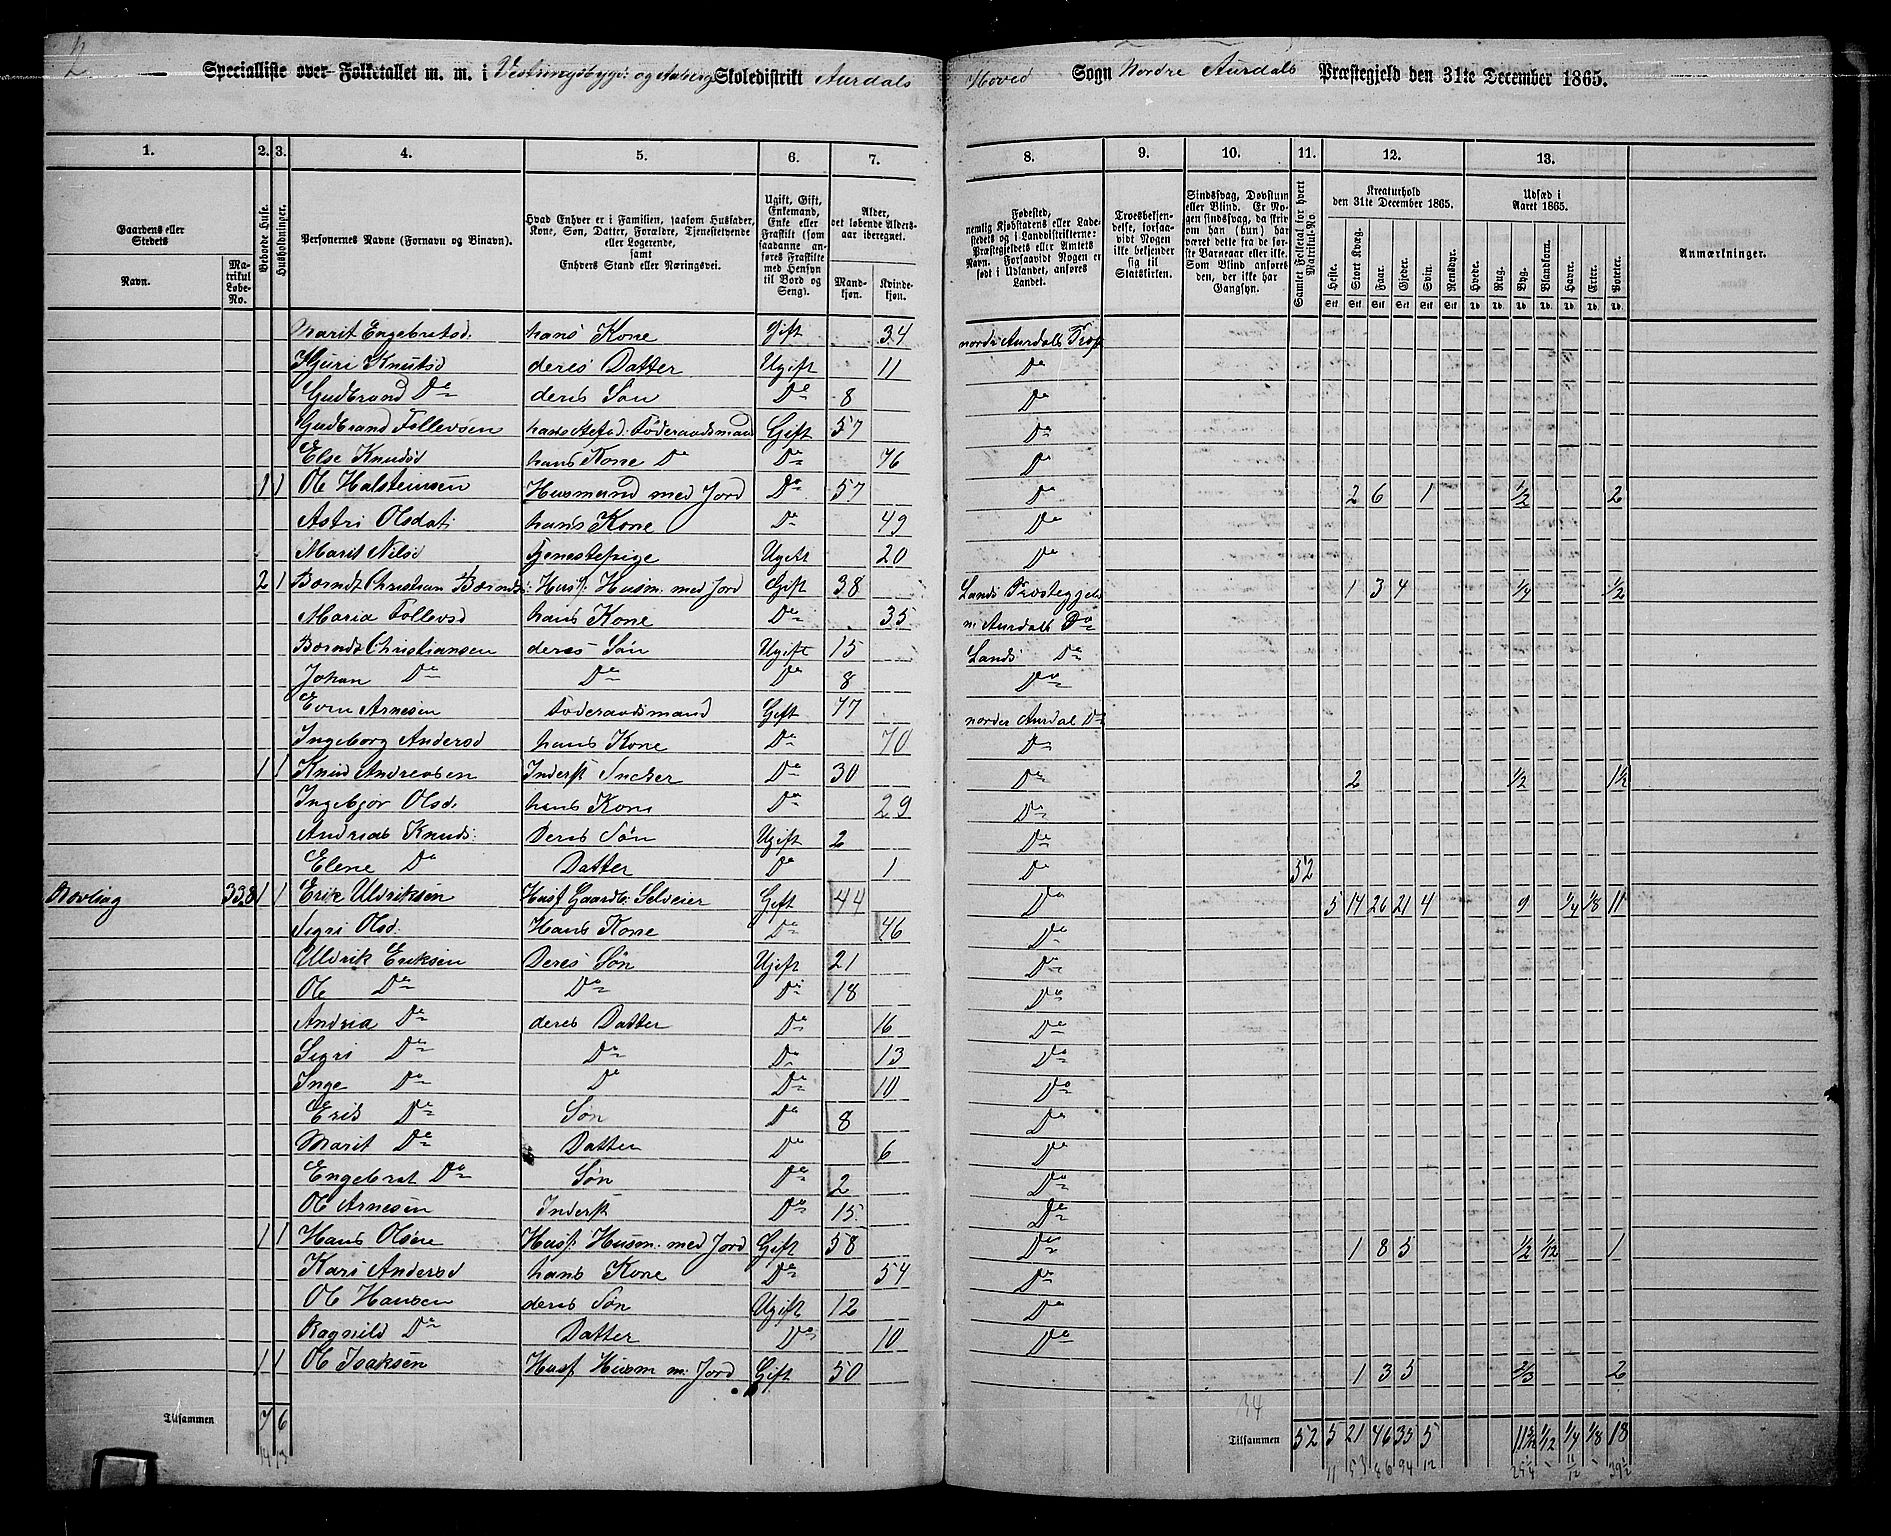 2
Specialliste over Folketallet m. m. i Vestringsbygd: og Aaberg Skoledistrikt Aurdals Hoved Sogn Nordre Aurdals Præstegjeld den 31te December 1865.
1. 2. 3. 4. 5. 6. 7. 8. 9. 10. 11. 12. 13.
Gaardens eller Stedets
Navn.
Matrikul Løbe-No.
Beboede Huse.
Husholdninger.
Personernes Navne (Fornavn og Binavn).
Hvad Enhver er i Familien, saasom Husfader, Kone, Søn, Datter, Forældre, Tjenestetyende eller Logerende, samt Enhvers Stand eller Næringsvei.
Ugift, Gift, Enkemand, Enke eller Fraskilt (som saadanne anføres Fraskilte med Hensyn til Bord og Seng).
Alder, det løbende Aldersaar iberegnet.
Mandkjøn.
Kvindekjøn.
Fødested, nemlig Kjøbstadens eller Ladestedets og i Landdistrikterne: Præstegjeldets eller Amtets Navn. Forsaavidt Nogen er født i Udlandet, anføres Landet.
Troesbekjendelse, forsaavidt Nogen ikke bekjender sig til Statskirken.
Sindssvag, Døvstum eller Blind. Er Nogen sindssvag, da skriv om han (hun) har været dette fra de første Barneaar eller ikke. Som Blind anføres den, der ikke har Gangsyn.
Samlet Folketal for hvert Matrikul-No.
Kreaturhold den 31te December 1865.
Heste. Stort Kvæg. Faar. Gjeder. Svin. Rensdyr.
Udsæd i Aaret 1865.
Hvede. Rug. Byg. Blandkorn. Havre. Erter. Poteter.
Anmærkninger.
Marit Engebretsd. hans Kone Gift 34 nordr Aurdals Præst
Kjuri Knutsd deres Datter Ugift 11 Do
Gudbrand Do deres Søn Do 8 Do
Gudbrand Tollevsen Føderaadsmand Gift 57 Do
Else Knudsd hans Kone Do Do 76 Do
1 1 Ole Halsteinsen Husmand med Jord Do 57 Do 2 6 1 1/2 2
Astri Olsdat: hans Kone Do 49 Do
Marit Nilsd Tjenestepige Ugift 20 Do
2 1 Berndt Christian Berndts: Husf: Husm. med Jord Gift 38 Lands Præstegjeld 1 3 4 1/4 1/2
Maria Tollevsd hans Kone Do 35 n. Aurdals Do
Berndt Christiansen deres Søn Ugift 15 Lands Do
Johan Do Do Do 8 Do
Even Arnesen Føderaadsmand Gift 77 norder Aurdal Do
Ingeborg Andersd hans Kone Do 70 Do
1 1 Knud Andreasen Inderst Sneker Do 30 Do 2 1/2 1 1/2
Ingebjør Olsd. hans Kone Do 29 Do
Andreas Knuds: Deres Søn Ugift 2 Do
Elene Do Datter Do 1 Do 52
Bovliag 338 1 1 Erik Uldriksen Husf Gaardb: Selveier Gift 44 Do 5 14 26 21 4 9 1/4 1/8 11
Sigri Olsd. Hans Kone Do 46 Do
Uldrik Eriksen Deres Søn Ugift 21 Do
Ole Do Do Do 18 Do
Andria Do deres Datter Do 16 Do
Sigri Do Do Do 13 Do
Inge Do Do Do 10 Do
Erik Do Søn Do 8 Do
Marit Do Datter Do 6 Do
Engebret Do Søn Do 2 Do
Ole Arnesen Inderst Do 15 Do
1 1 Hans Olsen Husf: Husm. med Jord Gift 58 Do 1 8 5 1/2 1/12 1
Kari Andersd hans Kone Do 54 Do
Ole Hansen deres Søn Ugift 12 Do
Ragnild Do Datter Do 10 Do
1 1 Ole Isaksen Husf Husm m. Jord Gift 50 1 3 5 2/3 2
34
Tilsammen 7 6 Tilsammen 52 5 21 46 35 5 1/12 1/4 1/8 18
14 13 11 53 86 94 12 11/12 39 1/2